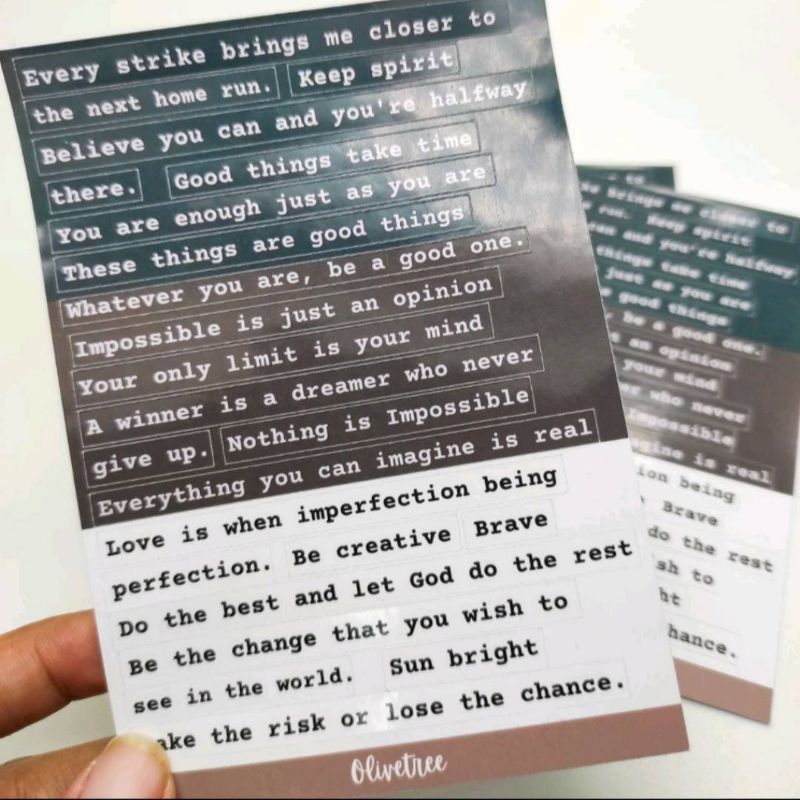 Every strike brings me closer to
the next home run. Keep spirit
Believe you can and you're halfway
there. Good things take time
You are enough just as you are
These things are good things
Whatever you are, be a good one.
Impossible is just an opinion
Your only limit is your mind
A winner is a dreamer who never
give up. Nothing is Impossible
Everything you can imagine is real
Love is when imperfection being
perfection. Be creative Brave
Do the best and let God do the rest
Be the change that you wish to
see in the world. Sun bright
ake the risk or lose the chance.
Olivetree
to
me closer to
run. Keep spirit
and you're halfway
things take time
just as you are
good things
be a good one.
an opinion
your mind
who never
Impossible
is real
ion being
Brave
do the rest
sh to
ht
hance.